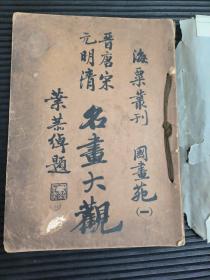 海粟叢刊
國畫苑（一）
晉唐宋
元明清
名畫大觀
葉恭綽題